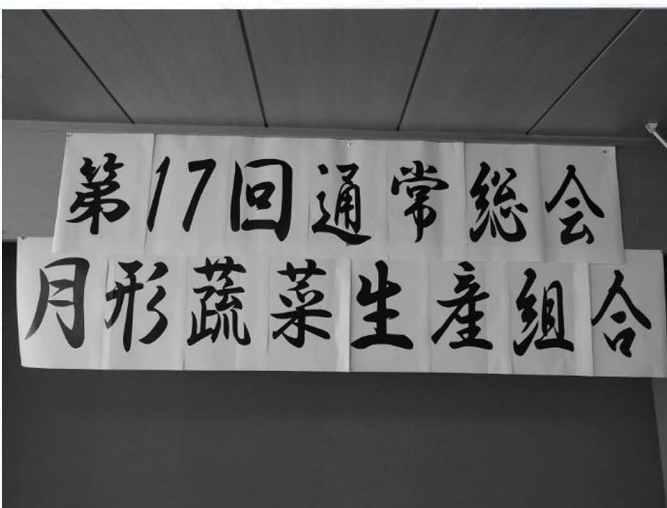 第17回通常総会
月形蔬菜生産組合